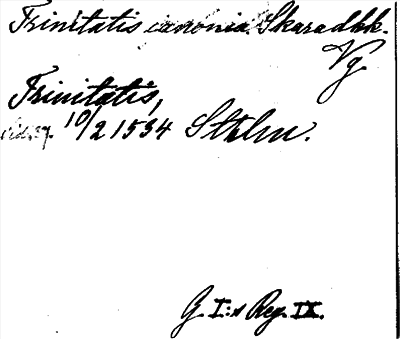 Trinitatis canonia. Skaradkk.
Vg
Trinitatis,
10/2 1534 Sthlm.
G. I:s Reg. IX.